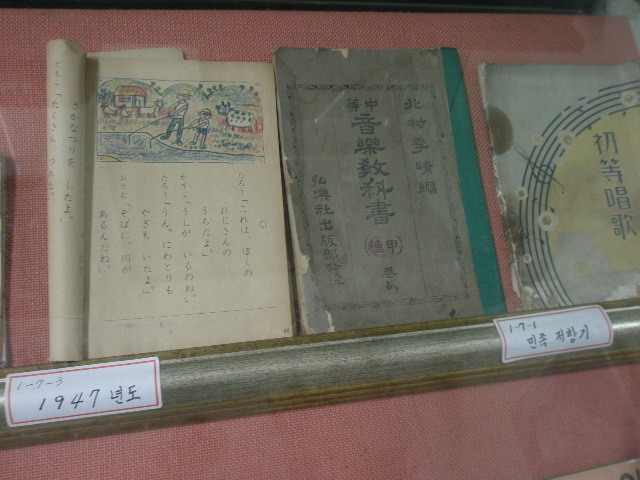 さかなつりを したよ。
○
たろう「これは、ぼくの
おじさんの
うちだよ」
かずこ「うしが いるのね。」
たろう「うん。にわとりも
やぎも いたよ。」
おさむ「そばに、川が
あるんだね。」
北村季晴編
中等
音樂教科書
甲種
巻貳
弘樂社出版部發行
初等唱歌
1-7-3
1947 년도
1-7-1
민족 저항기